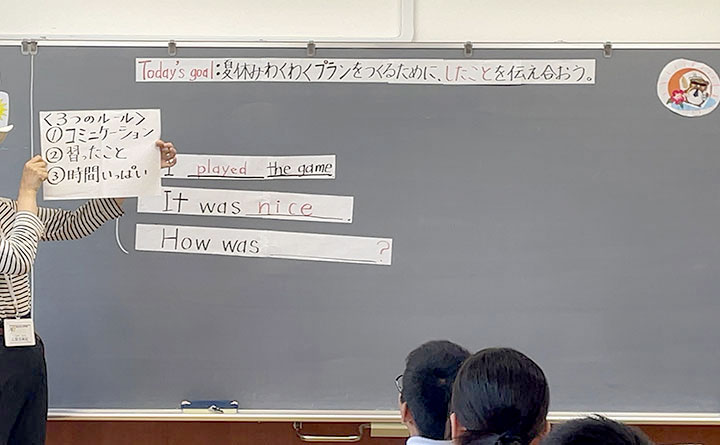 Today's goal:夏休みわくわくプランをつくるために、したことを伝え合おう。
<3つのルール>
①コミニケーション
②習ったこと
③時間いっぱい
I played the game
It was nice.
How was ?